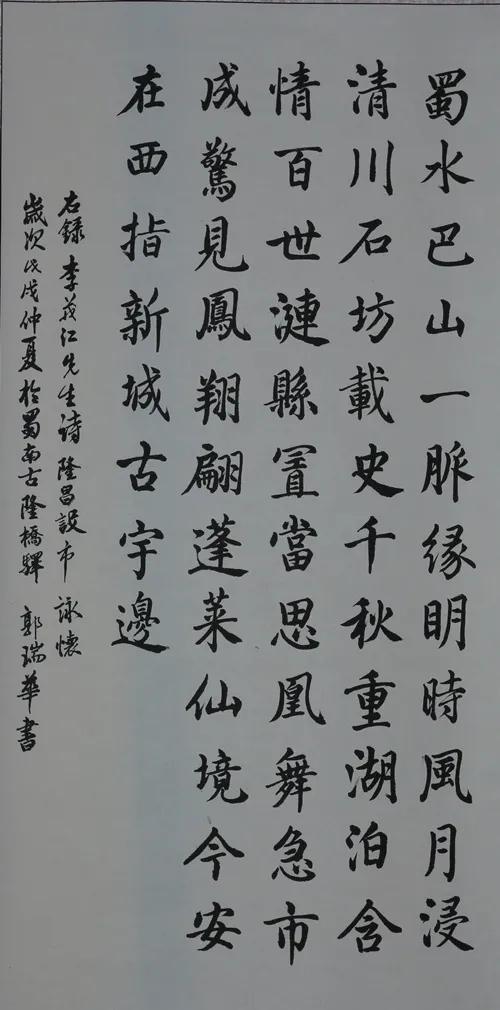 蜀水巴山一脈缘明時風月浸
清川石坊載史千秋重湖泊含
情百世漣縣置當思凰舞急市
成驚見鳳翔翩蓬莱仙境今安
在西指新城古宇邊
右錄李茂仁先生詩隆昌設市詠懷
歲次戊戌仲夏於蜀南古隆橋驛 郭瑞華書